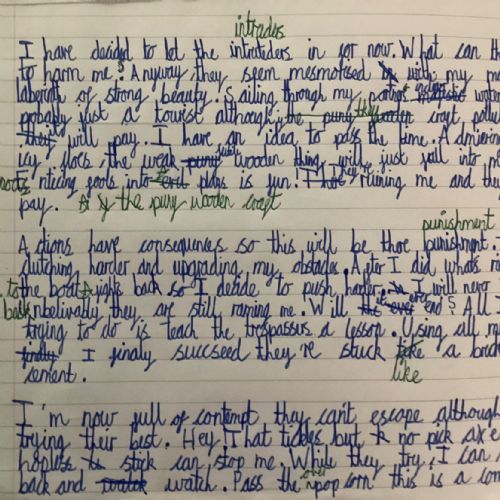 intruders
I have decided to let the intruteders in for now. What can th
to harm me? Anyway, they seem mesmorised with my
laberith of strong beauty. Sailing through my
probably just a tourist although, the puny they wooden craft pollu
they will pay. I have an idea to pass the time. Admiering
icy floes, the weak wooden thing will just fall into m
Enticing fools into plans is fun. I they're ruining me and the
pay. By the puny wooden craft
punishment
Actions have consequences so this will be thore punishment.
clutching harder and upgrading my obstacles. After I did whats
to the boat fights back so I deside to push harder. I will never
back nbelivably they are still raming me. Will ever end? All I
trying to do is teach the trespassus a lesson. Using all
finally I finaly succseed they're stuck like a brick
like
sement.
I'm now full of contempt they can't escape although
trying their best. Hey! That tickles but no pick axe
hopless stick can stop me. While they try, I can
one
back and watch. Pass the popcorn this is a